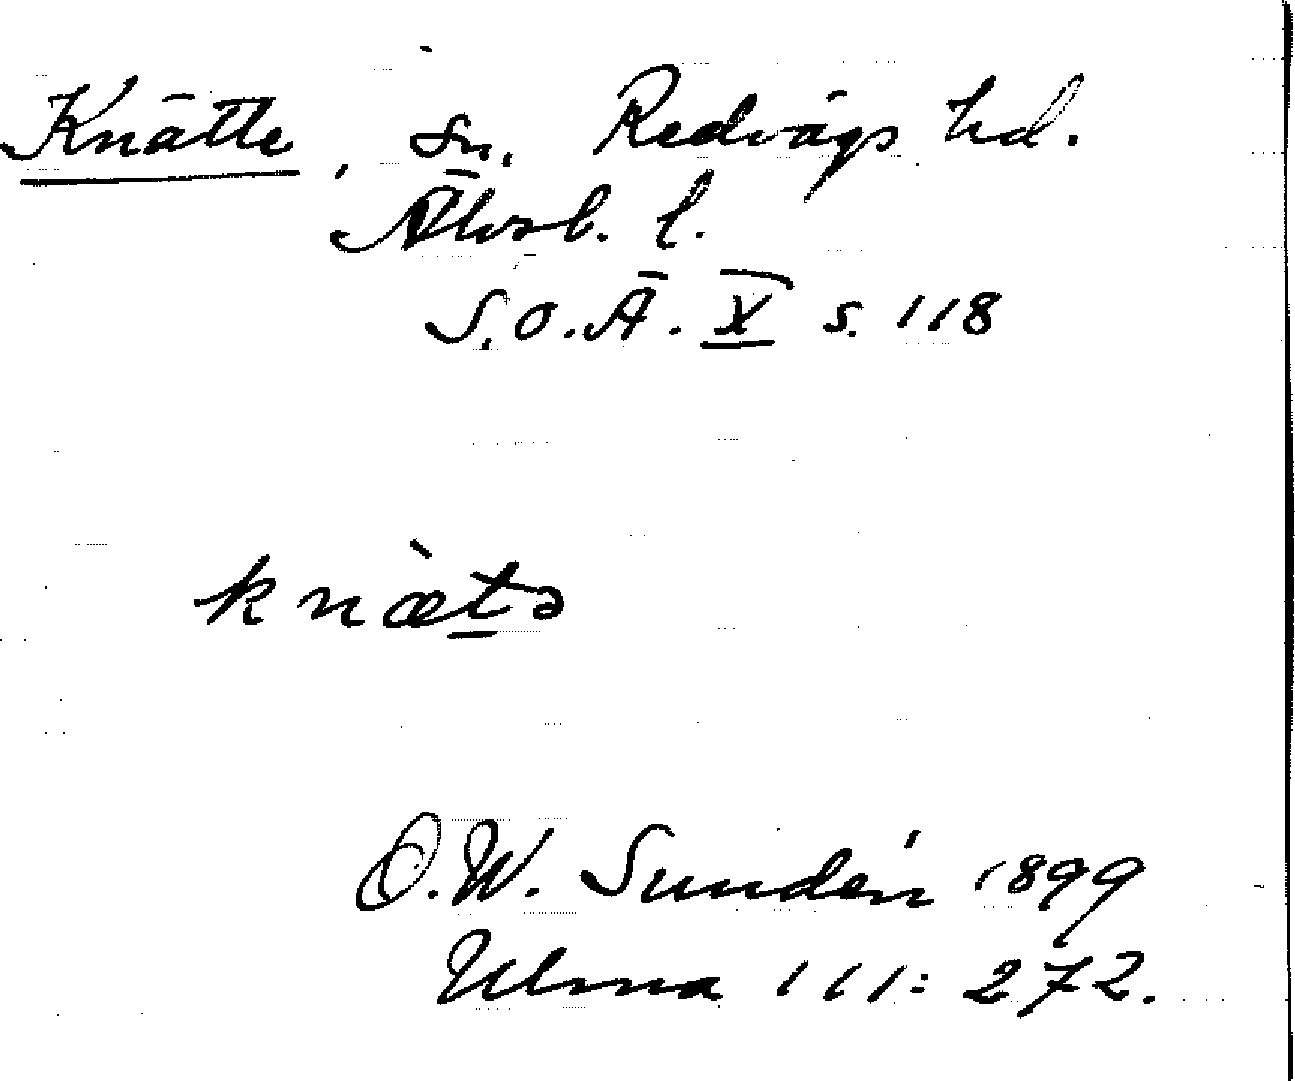 Knätte, Sn. Redvägs hd.
Älvsb. l.
S.O.Ä. X s. 118
knæ̀tə
O.W. Sundén 1899
Ulma 111:272.